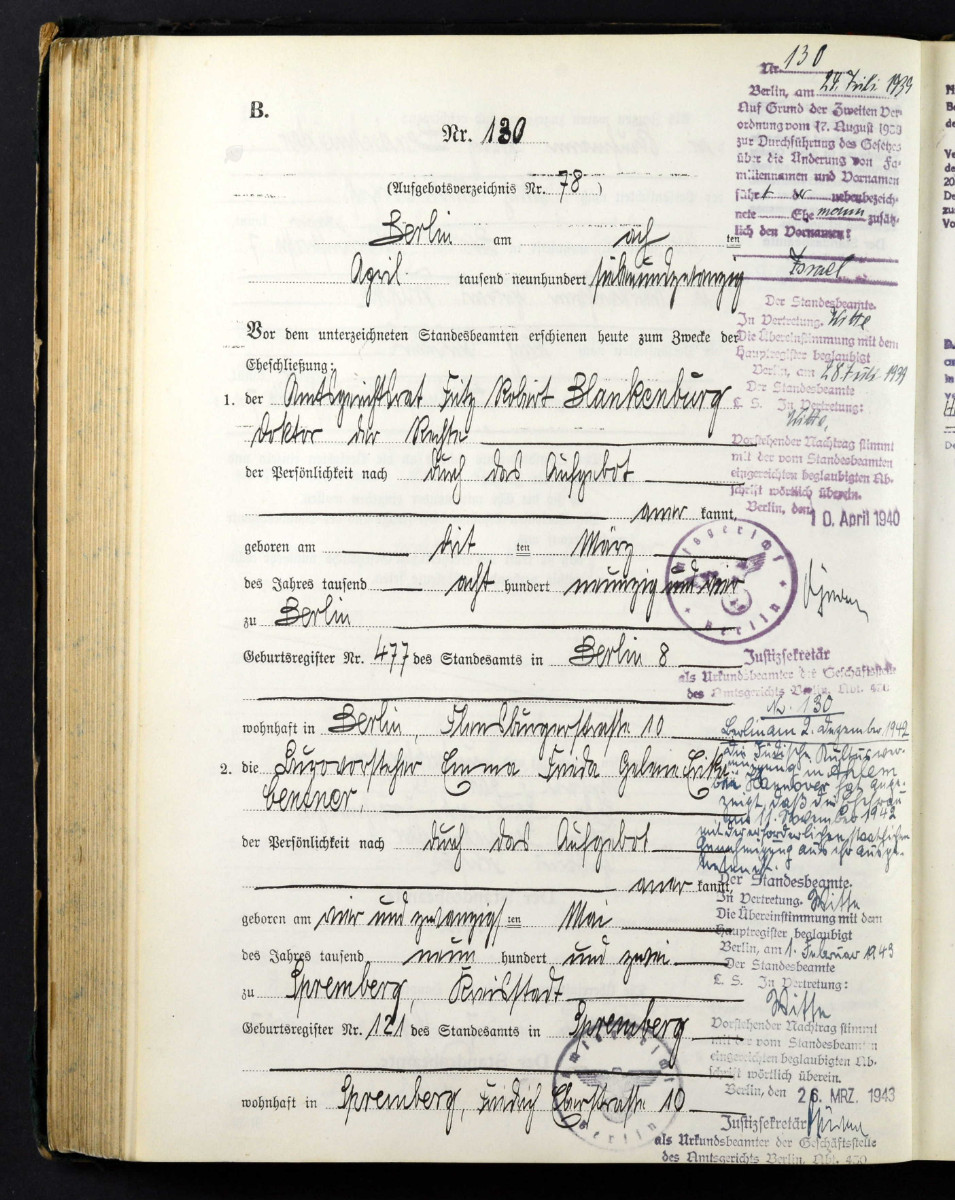 B.
Nr. 130
(Aufgebotsverzeichnis Nr. 78)
Berlin am acht ten
April tausend neunhundert siebenundzwanzig
Vor dem unterzeichneten Standesbeamten erschienen heute zum Zwecke der
Eheschließung:
1. der Amtsgerichtsrat Fritz Robert Blankenburg
Doktor der Rechte
der Persönlichkeit nach durch das Aufgebot
aner kannt,
geboren am drit ten März
des Jahres tausend acht hundert neunzig und vier
zu Berlin
Geburtsregister Nr. 477 des Standesamts in Berlin 8
wohnhaft in Berlin, Flensburgerstrasse 10
2. die Bürovorsteher Emma Frieda Erika
der Persönlichkeit nach durch das Aufgebot
aner kannt,
geboren am vier und zwanzigs ten Mai
des Jahres tausend neun hundert und zwei
zu Spremberg, Kreisstadt
Geburtsregister Nr. 121 des Standesamts in Spremberg
wohnhaft in Spremberg, Friedrich Eberstrasse 10
Nr. 130
Berlin, am 24. Juli 1939
Auf Grund der Zweiten Ver-
ordnung vom 17. August 1938
zur Durchführung des Gesetzes
über die Änderung von Fa-
miliennamen und Vornamen
führt der nebenbezeich-
nete Ehemann zusätz-
lich den Vornamen:
Israel
Der Standesbeamte.
In Vertretung. Witte
Die Übereinstimmung mit dem
Hauptregister beglaubigt
Berlin, am 28 Juli 1939
Der Standesbeamte
L. S. In Vertretung:
Witte.
Vorstehender Nachtrag stimmt
mit der vom Standesbeamten
eingereichten beglaubigten Ab-
schrift wörtlich überein.
Berlin, den 10. April 1940
Amtsgericht
Berlin
Justizsekretär
als Urkundsbeamter der Geschäftsstelle
des Amtsgerichts Berlin, Abt. 430
Nr. 130
Berlin am 2. Dezember 1942
Die Jüdische Kultusver-
einigung in Ahlem
bei Hannover hat ange-
zeigt, daß die Ehefrau
am 11. November 1942
mit der erforderlichen staatlichen
Genehmigung aus ihr ausge-
treten ist.
Der Standesbeamte.
In Vertretung. Witte
Die Übereinstimmung mit dem
Hauptregister beglaubigt
Berlin, am 1. Februar 1943
Der Standesbeamte
L. S. In Vertretung:
Witte
Vorstehender Nachtrag stimmt
mit der vom Standesbeamten
eingereichten beglaubigten Ab-
schrift wörtlich überein.
Berlin, den 26. MRZ. 1943
Amtsgericht
Berlin
Justizsekretär
als Urkundsbeamter der Geschäftsstelle
des Amtsgerichts Berlin, Abt. 430